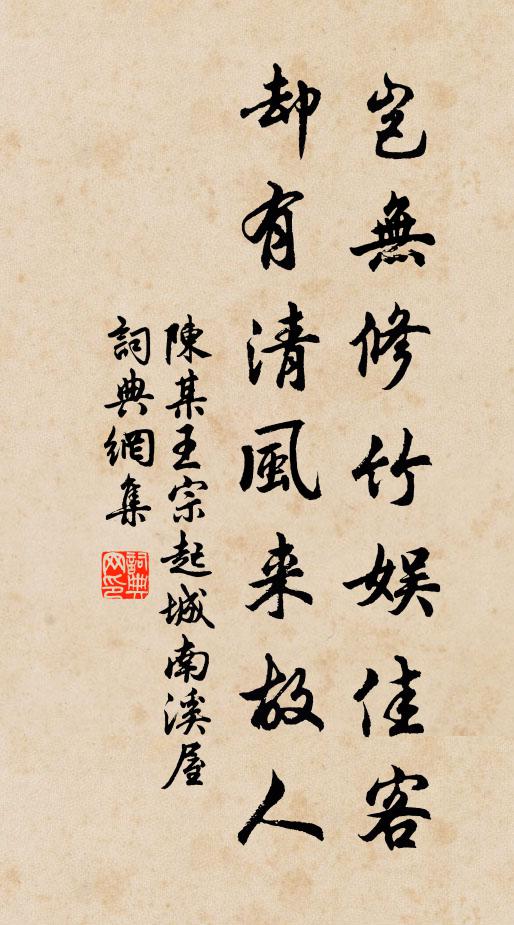 豈無修竹娱佳客
却有清風来故人
陳某王宗起城南溪屋
詞典網集
詞典網印